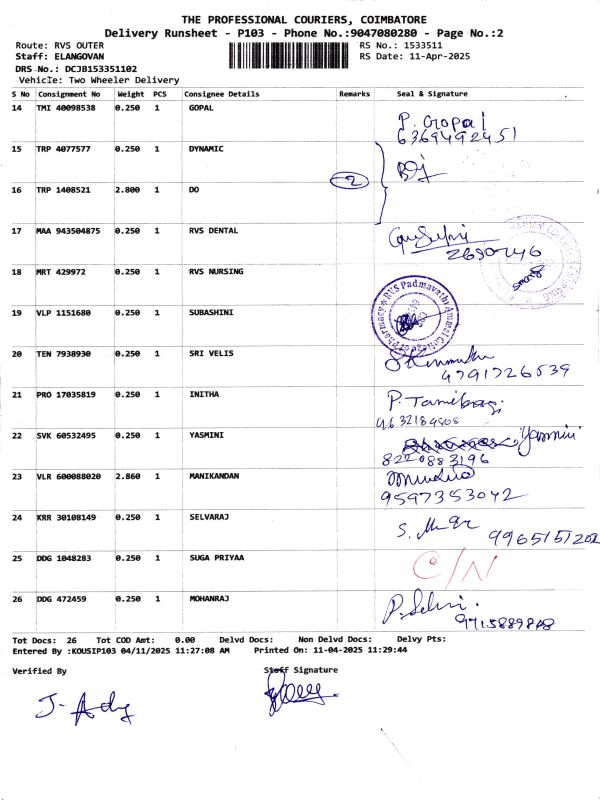 THE PROFESSIONAL COURIERS, COIMBATORE
Delivery Runsheet - P103 - Phone No.:9047080280 - Page No.:2
Route: RVS OUTER RS No.: 1533511
Staff: ELANGOVAN RS Date: 11-Apr-2025
DRS No.: DCJB153351102
Vehicle: Two Wheeler Delivery
S No Consignment No Weight PCS Consignee Details Remarks Seal & Signature
14 TMI 40098538 0.250 1 GOPAL P. Gopal
6369492451
15 TRP 4077577 0.250 1 DYNAMIC
2
16 TRP 1408521 2.800 1 DO
17 MAA 943504875 0.250 1 RVS DENTAL
2680746
18 MRT 429972 0.250 1 RVS NURSING
RVS Padmavathi Ammal College of Pharmacy
19 VLP 1151680 0.250 1 SUBASHINI
20 TEN 7938930 0.250 1 SRI VELIS
4791726539
21 PRO 17035819 0.250 1 INITHA
9632189508
22 SVK 60532495 0.250 1 YASMINI Yasmini
8220883196
23 VLR 600088020 2.860 1 MANIKANDAN
9597353042
24 KRR 30108149 0.250 1 SELVARAJ
9965151202
25 DDG 1048283 0.250 1 SUGA PRIYAA C/N
26 DDG 472459 0.250 1 MOHANRAJ P. Selvi.
9715889848
Tot Docs: 26 Tot COD Amt: 0.00 Delvd Docs: Non Delvd Docs: Delvy Pts:
Entered By :KOUSIP103 04/11/2025 11:27:08 AM Printed On: 11-04-2025 11:29:44
Verified By Staff Signature